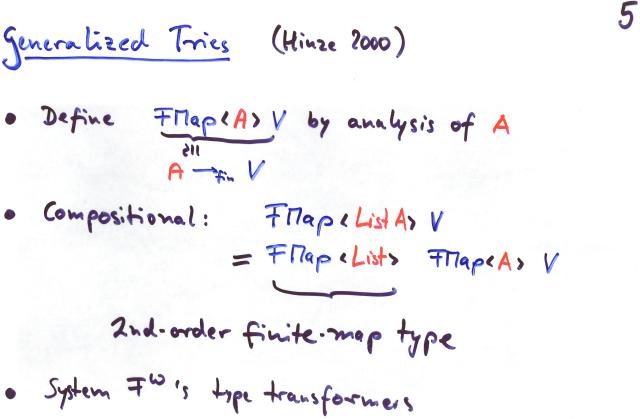 5
Generalized Tries (Hinze 2000)
• Define FMap<A> V by analysis of A
≅
A →fin V
• Compositional: FMap<List A> V
= FMap<List> FMap<A> V
2nd-order finite-map type
• System Fω's type transformers